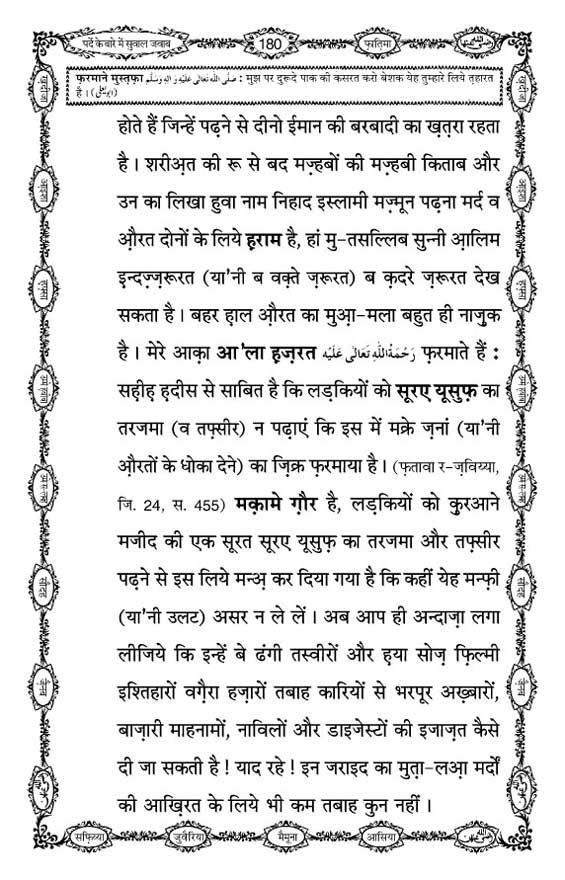 पर्दे के बारे में सुवाल जवाब
180
फ़ातिमा
फ़रमाने मुस्तफ़ा صَلَّى اللّٰهُ تَعَالٰى عَلَيْهِ وَاٰلِهٖ وَسَلَّم : मुझ पर दुरूदे पाक की कसरत करो बेशक येह तुम्हारे लिये त़हारत
है । (ابو یعلیٰ)
होते हैं जिन्हें पढ़ने से दीनो ईमान की बरबादी का ख़त़रा रहता
है । शरीअ़त की रू से बद मज़्हबों की मज़्हबी किताब और
उन का लिखा हुवा नाम निहाद इस्लामी मज़्मून पढ़ना मर्द व
औ़रत दोनों के लिये ह़राम है, हां मु-तसल्लिब सुन्नी आ़लिम
इन्दज़्ज़रूरत (या'नी ब वक़्ते ज़रूरत) ब क़दरे ज़रूरत देख
सकता है । बहर ह़ाल औ़रत का मुआ़-मला बहुत ही नाज़ुक
है । मेरे आक़ा आ'ला ह़ज़रत رَحْمَةُ اللّٰهِ تَعَالٰى عَلَيْه फ़रमाते हैं :
सह़ीह़ ह़दीस से साबित है कि लड़कियों को सूरए यूसुफ़ का
तरजमा (व तफ़्सीर) न पढ़ाएं कि इस में मक्रे ज़नां (या'नी
औ़रतों के धोका देने) का ज़िक्र फ़रमाया है । (फ़तावा र-ज़विय्या,
जि. 24, स. 455) मक़ामे ग़ौर है, लड़कियों को क़ुरआने
मजीद की एक सूरत सूरए यूसुफ़ का तरजमा और तफ़्सीर
पढ़ने से इस लिये मन्अ़ कर दिया गया है कि कहीं येह मन्फ़ी
(या'नी उलट) असर न ले लें । अब आप ही अन्दाज़ा लगा
लीजिये कि इन्हें बे ढंगी तस्वीरों और ह़या सोज़ फ़िल्मी
इश्तिहारों वग़ैरा हज़ारों तबाह कारियों से भरपूर अख़्बारों,
बाज़ारी माहनामों, नाविलों और डाइजेस्टों की इजाज़त कैसे
दी जा सकती है ! याद रहे ! इन जराइद का मुत़ा-लआ़ मर्दों
की आख़िरत के लिये भी कम तबाह कुन नहीं ।
सफ़िय्या
जुवैरिया
मैमूना
आसिया